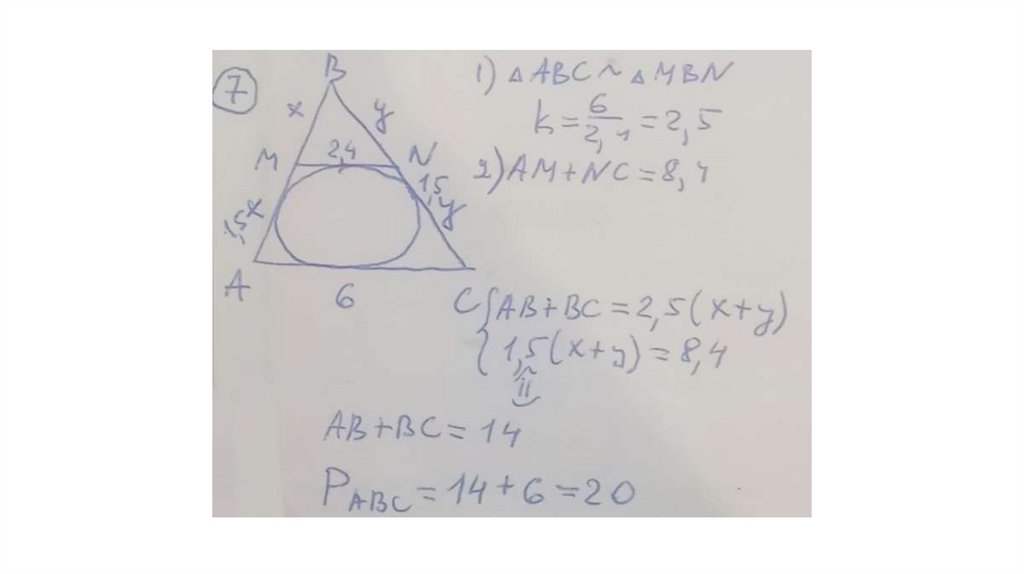 7
B
x
y
M
2,4
N
1,5x
1,5y
A
6
C
1) △ABC ~ △MBN
k = 6/2,4 = 2,5
2) AM + NC = 8,4
{ AB + BC = 2,5(x+y)
1,5(x+y) = 8,4
AB + BC = 14
P_ABC = 14 + 6 = 20